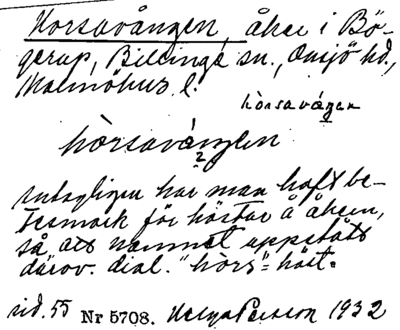 Horsavången, åker i Bö-
gerup, Billinge sn., Onsjö hd.,
Malmöhus l.
hòrsavágen
hòrsavaŋen
Antagligen har man haft be-
tesmark för hästar å åkern,
så att namnet uppstått
därov. dial. "hòrs" = häst.
sid. 55 Nr 5708. Helga Persson 1932